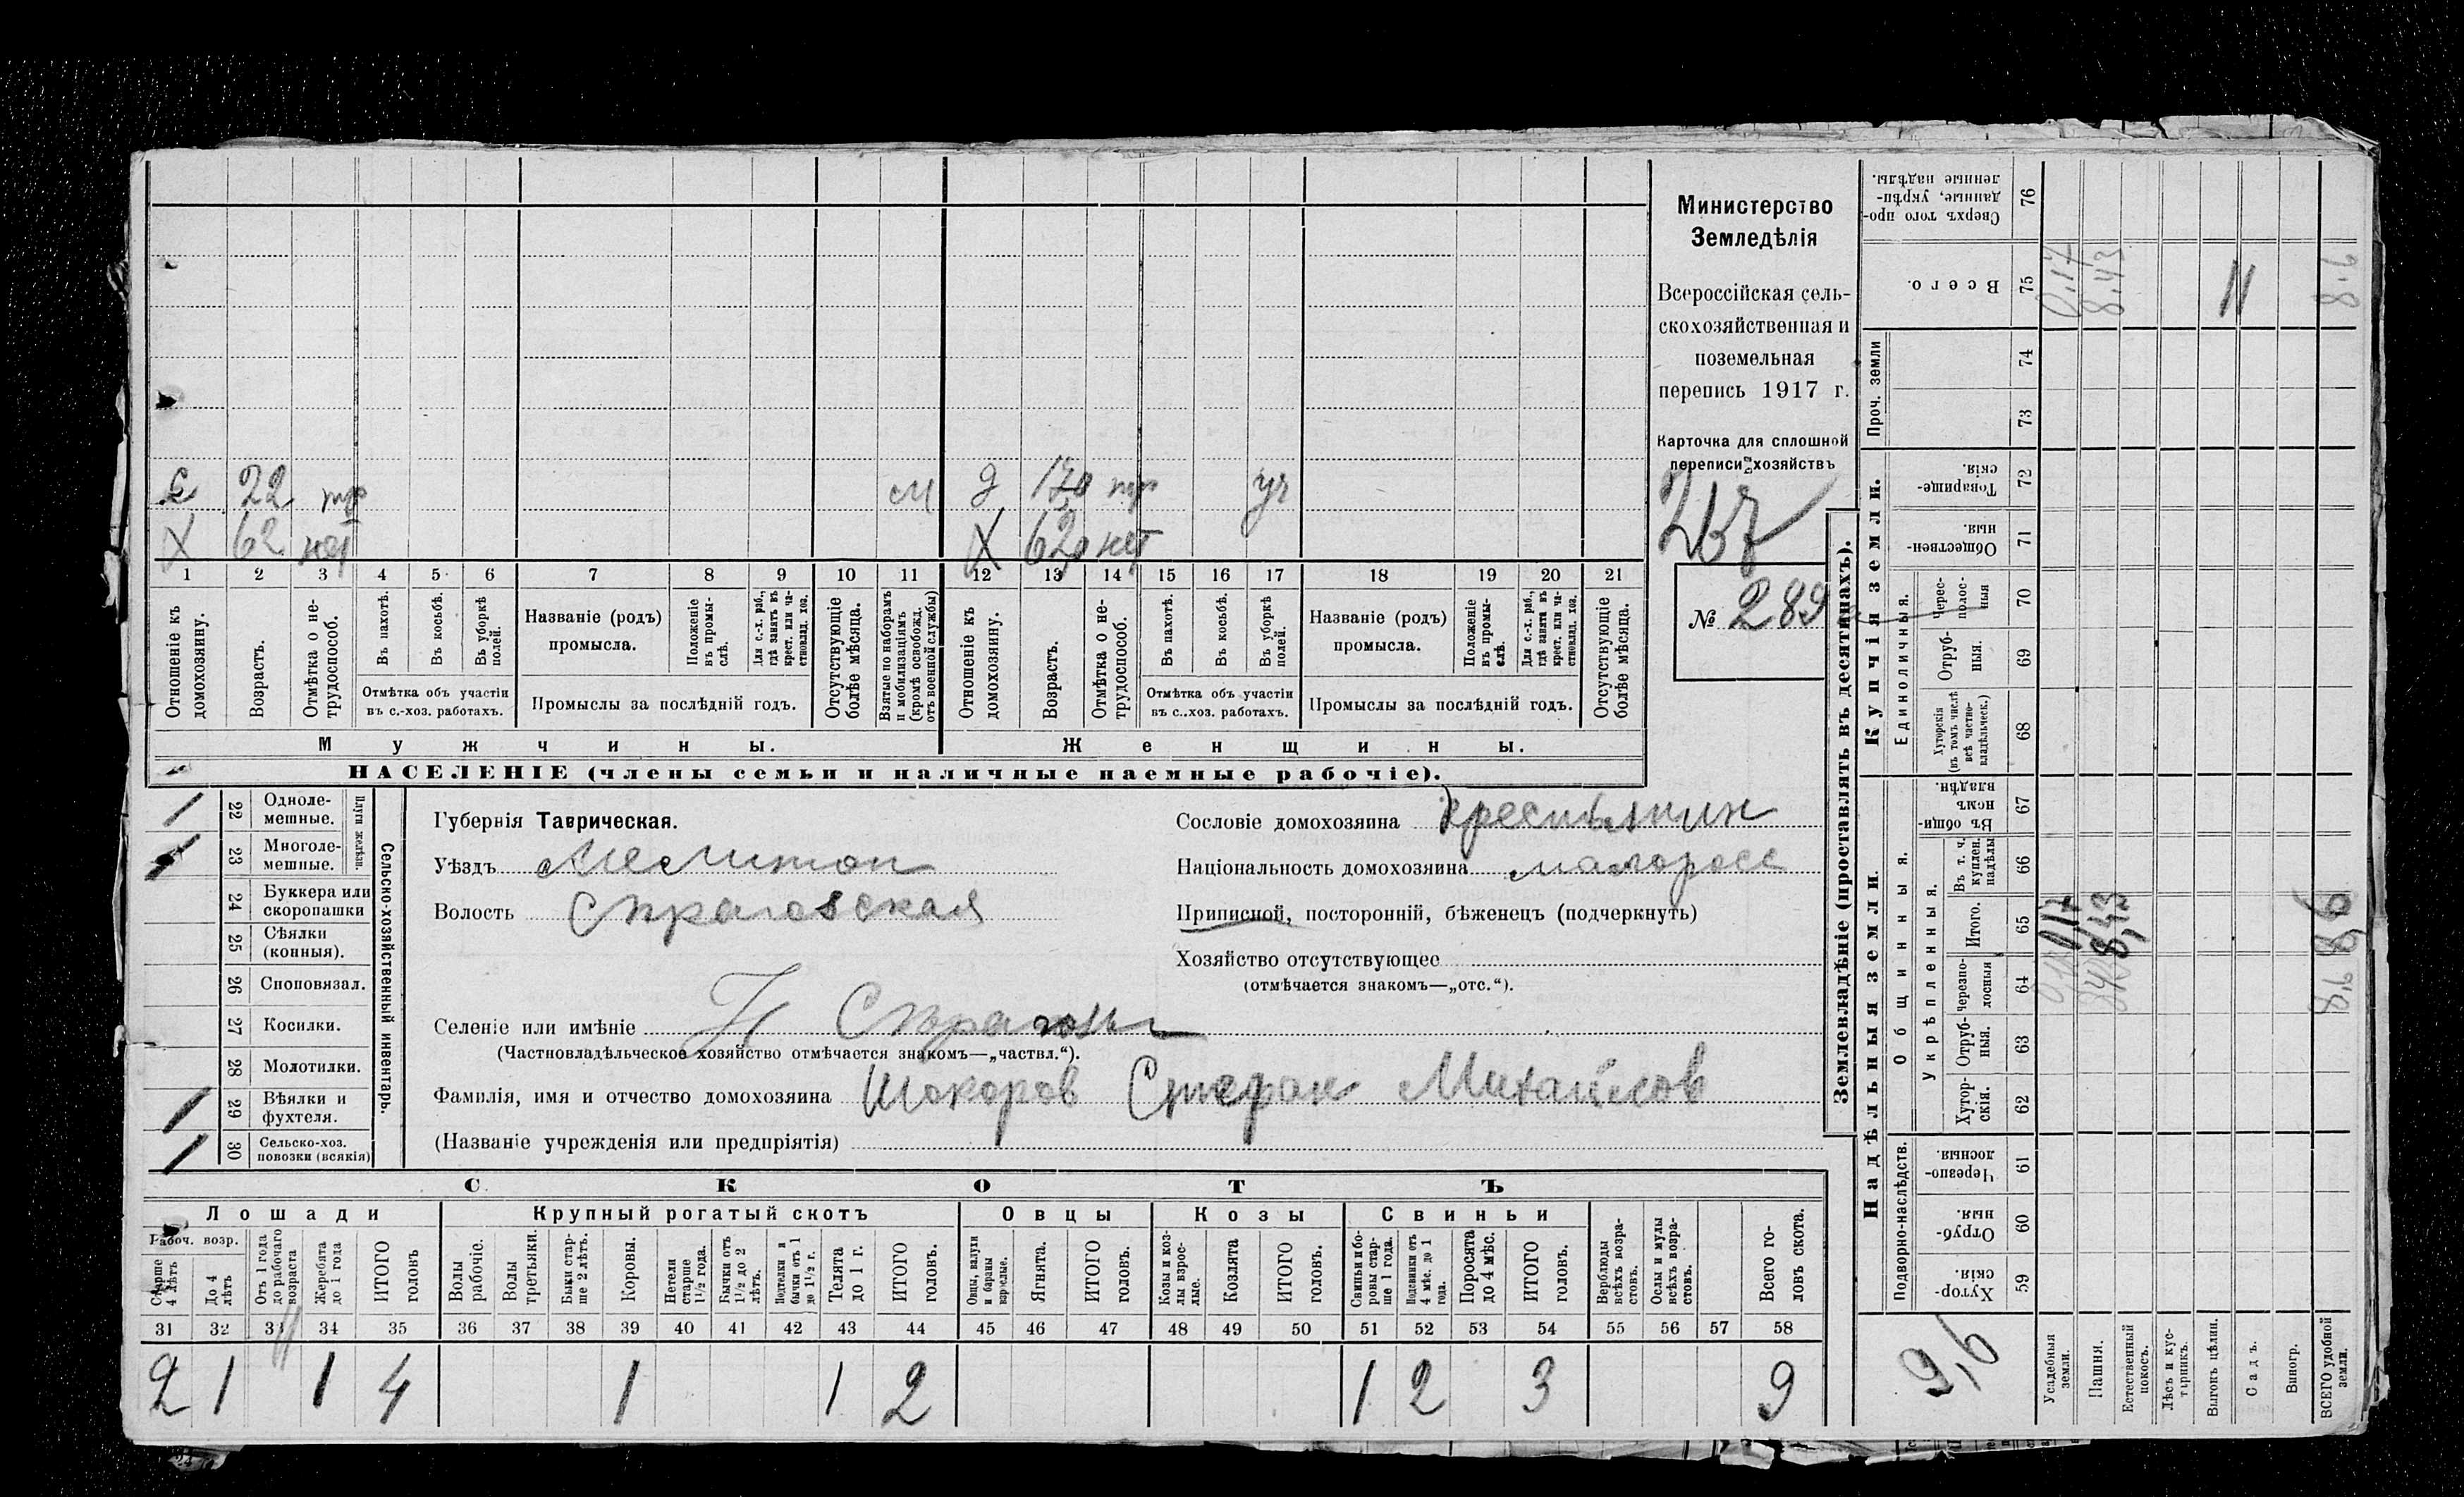 с 22 тр м д 17 тр уч
Х 62 нет Х 62 нет
1 2 3 4 5 6 7 8 9 10 11 12 13 14 15 16 17 18 19 20 21
Отношеніе къ домохозяину.
Возрастъ.
Отмѣтка о не-
трудоспособ.
Въ пахотѣ.
Въ косьбѣ.
Въ уборкѣ полей.
Отмѣтка объ участіи
въ с.-хоз. работахъ.
Названіе (родъ)
промысла.
Положеніе
въ промы-
слѣ.
Для с.-х. раб.,
гдѣ занятъ въ
крест. или ча-
стновлад. хоз.
Промыслы за послѣдній годъ.
Отсутствующіе
болѣе мѣсяца.
Взятые по наборамъ
и мобилизаціямъ
(кромѣ освобожд.
отъ военной службы)
Отношеніе къ
домохозяину.
Возрастъ.
Отмѣтка о не-
трудоспособ.
Въ пахотѣ.
Въ косьбѣ.
Въ уборкѣ
полей.
Отмѣтка объ участіи
въ с.-хоз. работахъ.
Названіе (родъ)
промысла.
Положеніе
въ промы-
слѣ.
Для с.-х. раб.,
гдѣ заняты въ
крест. или ча-
стновлад. хоз.
Промыслы за послѣдній годъ.
Отсутствующіе
болѣе мѣсяца.
Мужчины.
Женщины.
НАСЕЛЕНІЕ (члены семьи и наличные наемные рабочіе).
Министерство
Земледѣлія
Всероссійская сель-
скохозяйственная и
поземельная
перепись 1917 г.
Карточка для сплошной
переписи хозяйствъ
№ 289
22 Одноле-
мешные.
23 Многоле-
мешные.
Плуги желѣзн.
24 Буккера или
скоропашки
25 Сѣялки
(конныя).
26 Сноповязал.
27 Косилки.
28 Молотилки.
29 Вѣялки и
фухтеля.
30 Сельско-хоз.
повозки (всякія)
Сельско-хозяйственный инвентарь.
Губернія Таврическая.
Уѣздъ Мелитоп
Волость Строговская
Сословіе домохозяина крестьянин
Національность домохозяина малоросс
Приписной, посторонній, бѣженецъ (подчеркнуть)
Хозяйство отсутствующее
(отмѣчается знакомъ—„отс.“).
Селеніе или имѣніе
(Частновладѣльческое хозяйство отмѣчается знакомъ—„частвл.“).
Фамилія, имя и отчество домохозяина Шокоров Стефан Михайлов
(Названіе учрежденія или предпріятія)
СКОТЪ
Лошади Крупный рогатый скотъ Овцы Козы Свиньи
Рабоч. возр.
Старше
4 лѣтъ
До 4
лѣтъ
Отъ 1 года
до рабочаго
возраста
Жеребята
до 1 года
ИТОГО
головъ
Волы
рабочіе.
Волы
третьяки.
Быки стар-
ше 2 лѣтъ.
Коровы.
Нетели
старше
1½ года.
Бычки отъ
1½ до 2
лѣтъ.
Подтелки и
бычки отъ 1
до 1½ г.
Телята
до 1 г.
ИТОГО
головъ.
Овцы, валухи
и бараны
взрослые.
Ягнята.
ИТОГО
головъ.
Козы и коз-
лы взрос-
лые.
Козлята
ИТОГО
головъ.
Свиньи и бо-
ровы стар-
ше 1 года.
Подсвинки отъ
4 мѣс. до 1
года.
Поросята
до 4 мѣс.
ИТОГО
головъ.
Верблюды
всѣхъ возра-
стовъ.
Ослы и мулы
всѣхъ возра-
стовъ.
Всего го-
ловъ скота.
31 32 33 34 35 36 37 38 39 40 41 42 43 44 45 46 47 48 49 50 51 52 53 54 55 56 57 58
2 1 1 4 1 1 2 1 2 3 9
Землевладѣніе (проставлять въ десятинахъ).
Надѣльныя земли.
Купчія земли.
Подворно-наслѣдств.
Общинныя.
Укрѣпленныя.
Единоличныя.
Проч. земли
Сверхъ того про-
данные, укрѣп-
ленные надѣлы. 76
Всего. 75 0,17 8,43 8,6
74
73
Товарище-
скія. 72
Обществен-
ныя. 71
Черес-
полос-
ныя 70
Отруб-
ныя. 69
Хуторскія
(въ томъ числѣ
всѣ частно-
владѣльческ.) 68
Въ общи-
номъ
владѣн. 67
Въ т. ч.
куплен.
надѣлы 66
Итого. 65 0,17 8,43 8,6
Черезпо-
лосныя 64 8,6
Отруб-
ныя. 63
Хутор-
скія. 62
Черезпо-
лосныя. 61
Отруб-
ныя. 60
Хутор-
скія. 59
9,6
Усадебныя
земли.
Пашня.
Естественный
покосъ.
Лѣсъ и кус-
тарникъ.
Выгонъ цѣлин.
Садъ.
Виногр.
ВСЕГО удобной
земли.